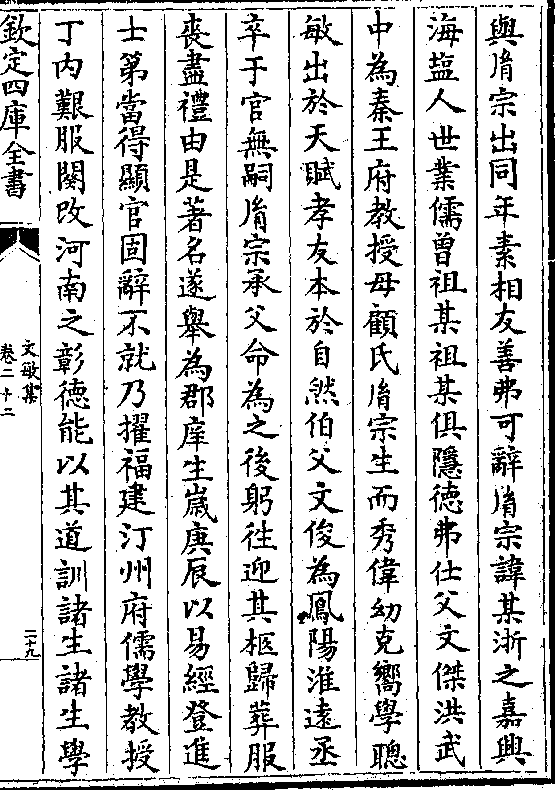 與胤宗出同年素相友善弗可辭胤宗諱某浙之嘉興
海塩人世業儒曾祖某祖某俱隱德弗仕父文傑洪武
中為秦王府教授母顧氏胤宗生而秀偉幼克嚮學聰
敏出於天賦孝友本於自然伯父文俊為鳳陽淮遠丞
卒于官無嗣胤宗承父命為之後躬往迎其柩歸葬服
喪盡禮由是著名遂舉為郡庠生歲庚辰以易經登進
士第當得顯官固辭不就乃擢福建汀州府儒學教授
丁内艱服闋改河南之彰德能以其道訓諸生諸生學
欽定四庫全書
文敏集
卷二十二
二十九